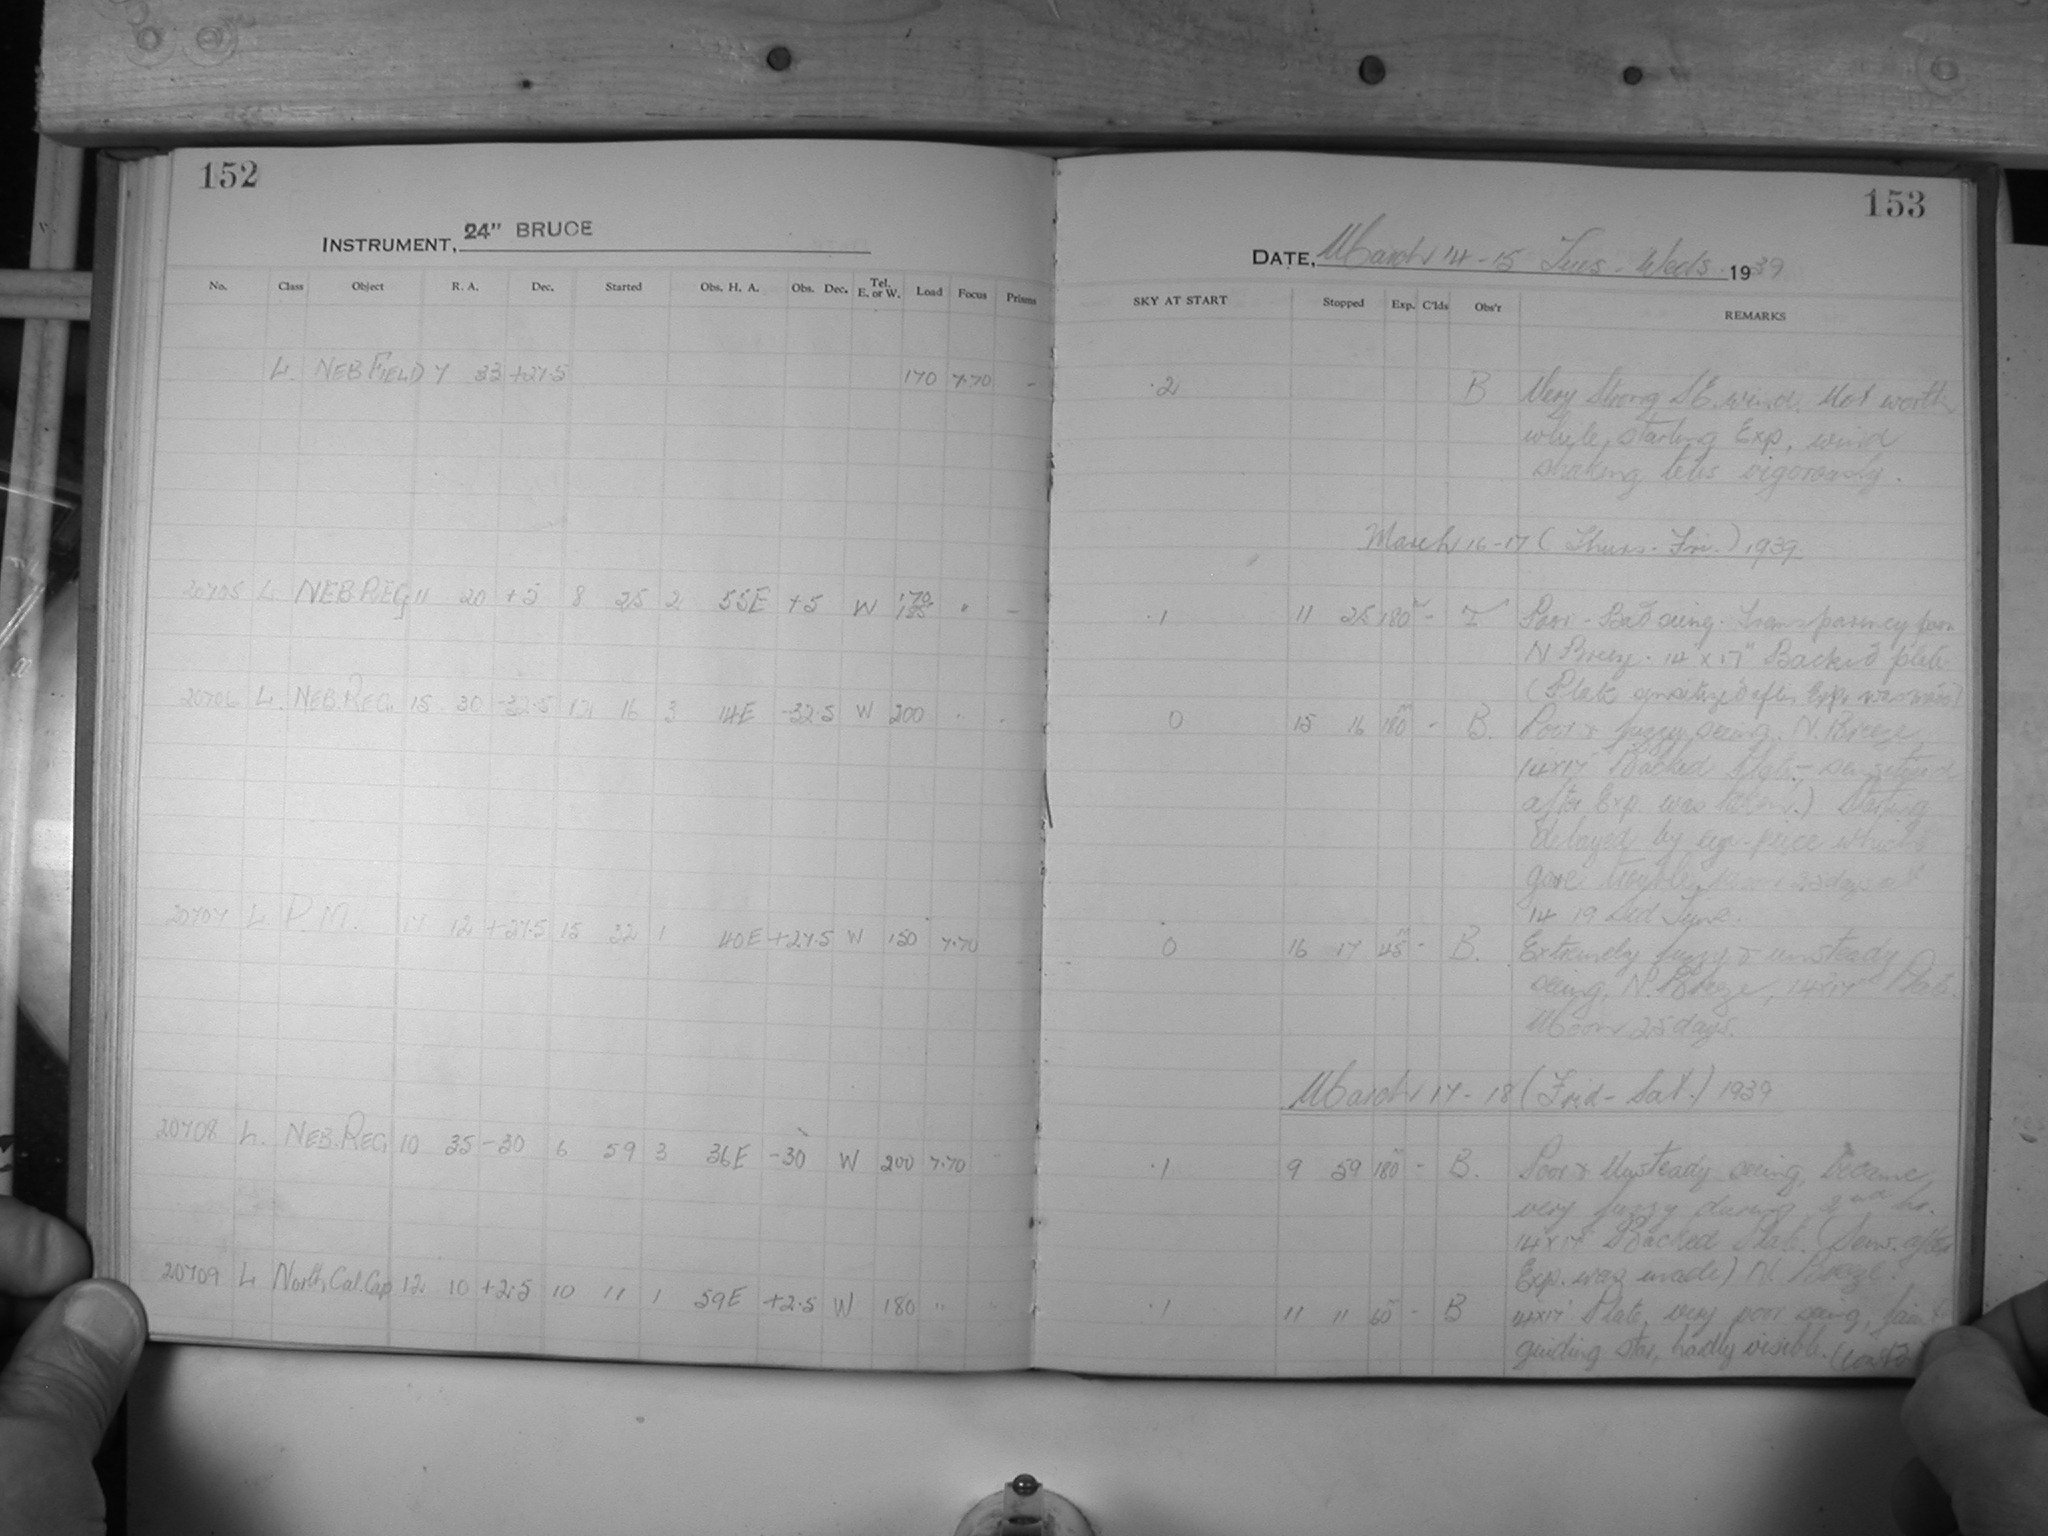 152
INSTRUMENT, 24" BRUCE
No. Class Object R. A. Dec. Started Obs. H. A. Obs. Dec. Tel. E. or W. Load Focus Prisms
L. NEB FIELD 7 33 +27.5 170 7.70 -
20705 L NEB.REG 11 20 +5 8 25 2 55E +5 W 170 185 " -
20706 L. NEB.REG. 15 30 -32.5 12 16 3 14E -32.5 W 200 " "
20707 L P.M. 17 12 +27.5 15 32 1 40E +27.5 W 150 7.70
20708 L. NEB.REG 10 35 -30 6 59 3 36E -30 W 200 7.70 "
20709 L North Cal. Cap 12 10 +2.5 10 11 1 59E +2.5 W 180 " "
153
DATE, March 14-15 Tues-Weds. 1939
SKY AT START Stopped Exp. C'lds Obs'r REMARKS
.2 B Very Strong SE. wind. Not worth
while, starting Exp. wind
shaking teles vigorously.
March 16-17 (Thurs-Fri.) 1939.
.1 11 25 180 - Poor - Bad seeing. Transparency poor
N Breeze. 14"x17" Backed plate
(Plate sensitized after Exp. was made)
0 15 16 180 - B. Poor & fuzzy seeing. N. Breeze,
14x17" Backed Plate - sensitized
after Exp. was taken.) Starting
delayed by eye-piece which
gave trouble, Moon 25 days at
14 19 Sid Time.
0 16 17 45 - B. Extremely fuzzy & unsteady
seeing, N. Breeze, 14"x17" Plate.
Moon 25 days.
March 17-18 (Frid-Sat.) 1939
.1 9 59 180 - B. Poor & Unsteady seeing, became
very fuzzy during 2nd hr.
14"x17" Backed Plate. (Sens. after
Exp. was made) N. Breeze.
.1 11 11 60 - B 14x17" Plate, very poor seeing, faint
guiding star, hardly visible. (cont'd